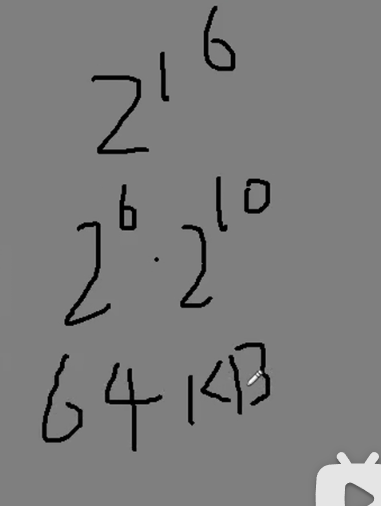 2^16
2^6 · 2^10
64 KB